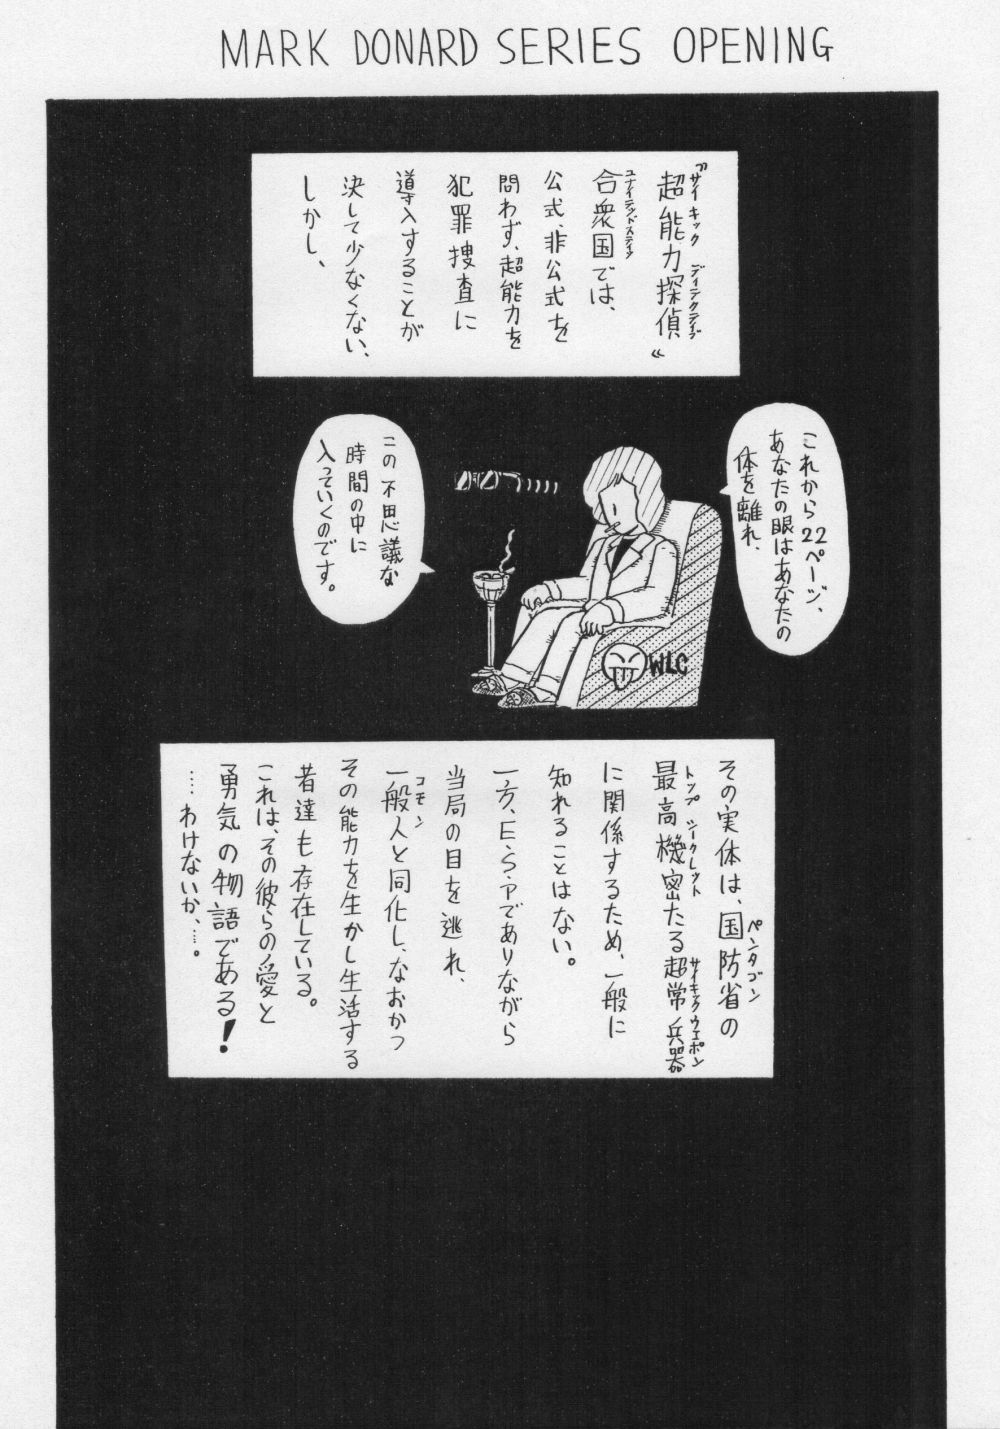 MARK DONARD SERIES OPENING
〝超能力探偵〟
サイキック ディテクティブ
合衆国では、
ユナイテッドステイツ
公式、非公式を
問わず、超能力を
犯罪捜査に
導入することが
決して少なくない、
しかし、
これから22ページ、
あなたの眼はあなたの
体を離れ、
この不思議な
時間の中に
入っていくのです。
WLC
その実体は、国防省の
ペンタゴン
最高機密たる超常兵器
トップ シークレット サイキックウエポン
に関係するため、一般に
知れることはない。
一方、E・S・Pでありながら
当局の目を逃れ、
一般人と同化し、なおかつ
コモン
その能力を生かし生活する
者達も存在している。
これは、その彼らの愛と
勇気の物語である!
……わけないか、…。